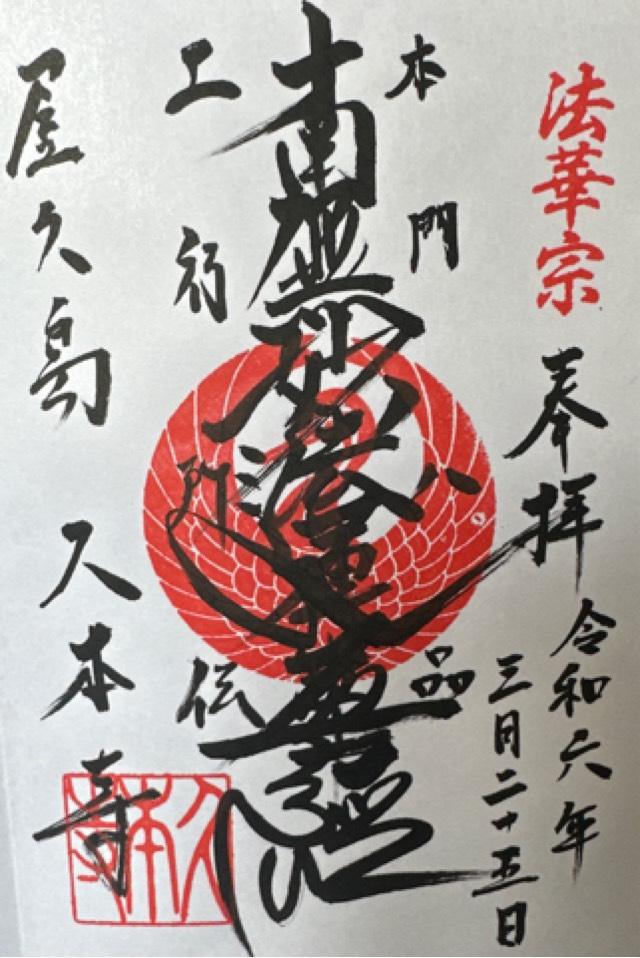 法華宗
奉拝
令和六年
三月二十五日
本門八品
南無妙法蓮華経
上行所伝
屋久島
久本寺
久本寺